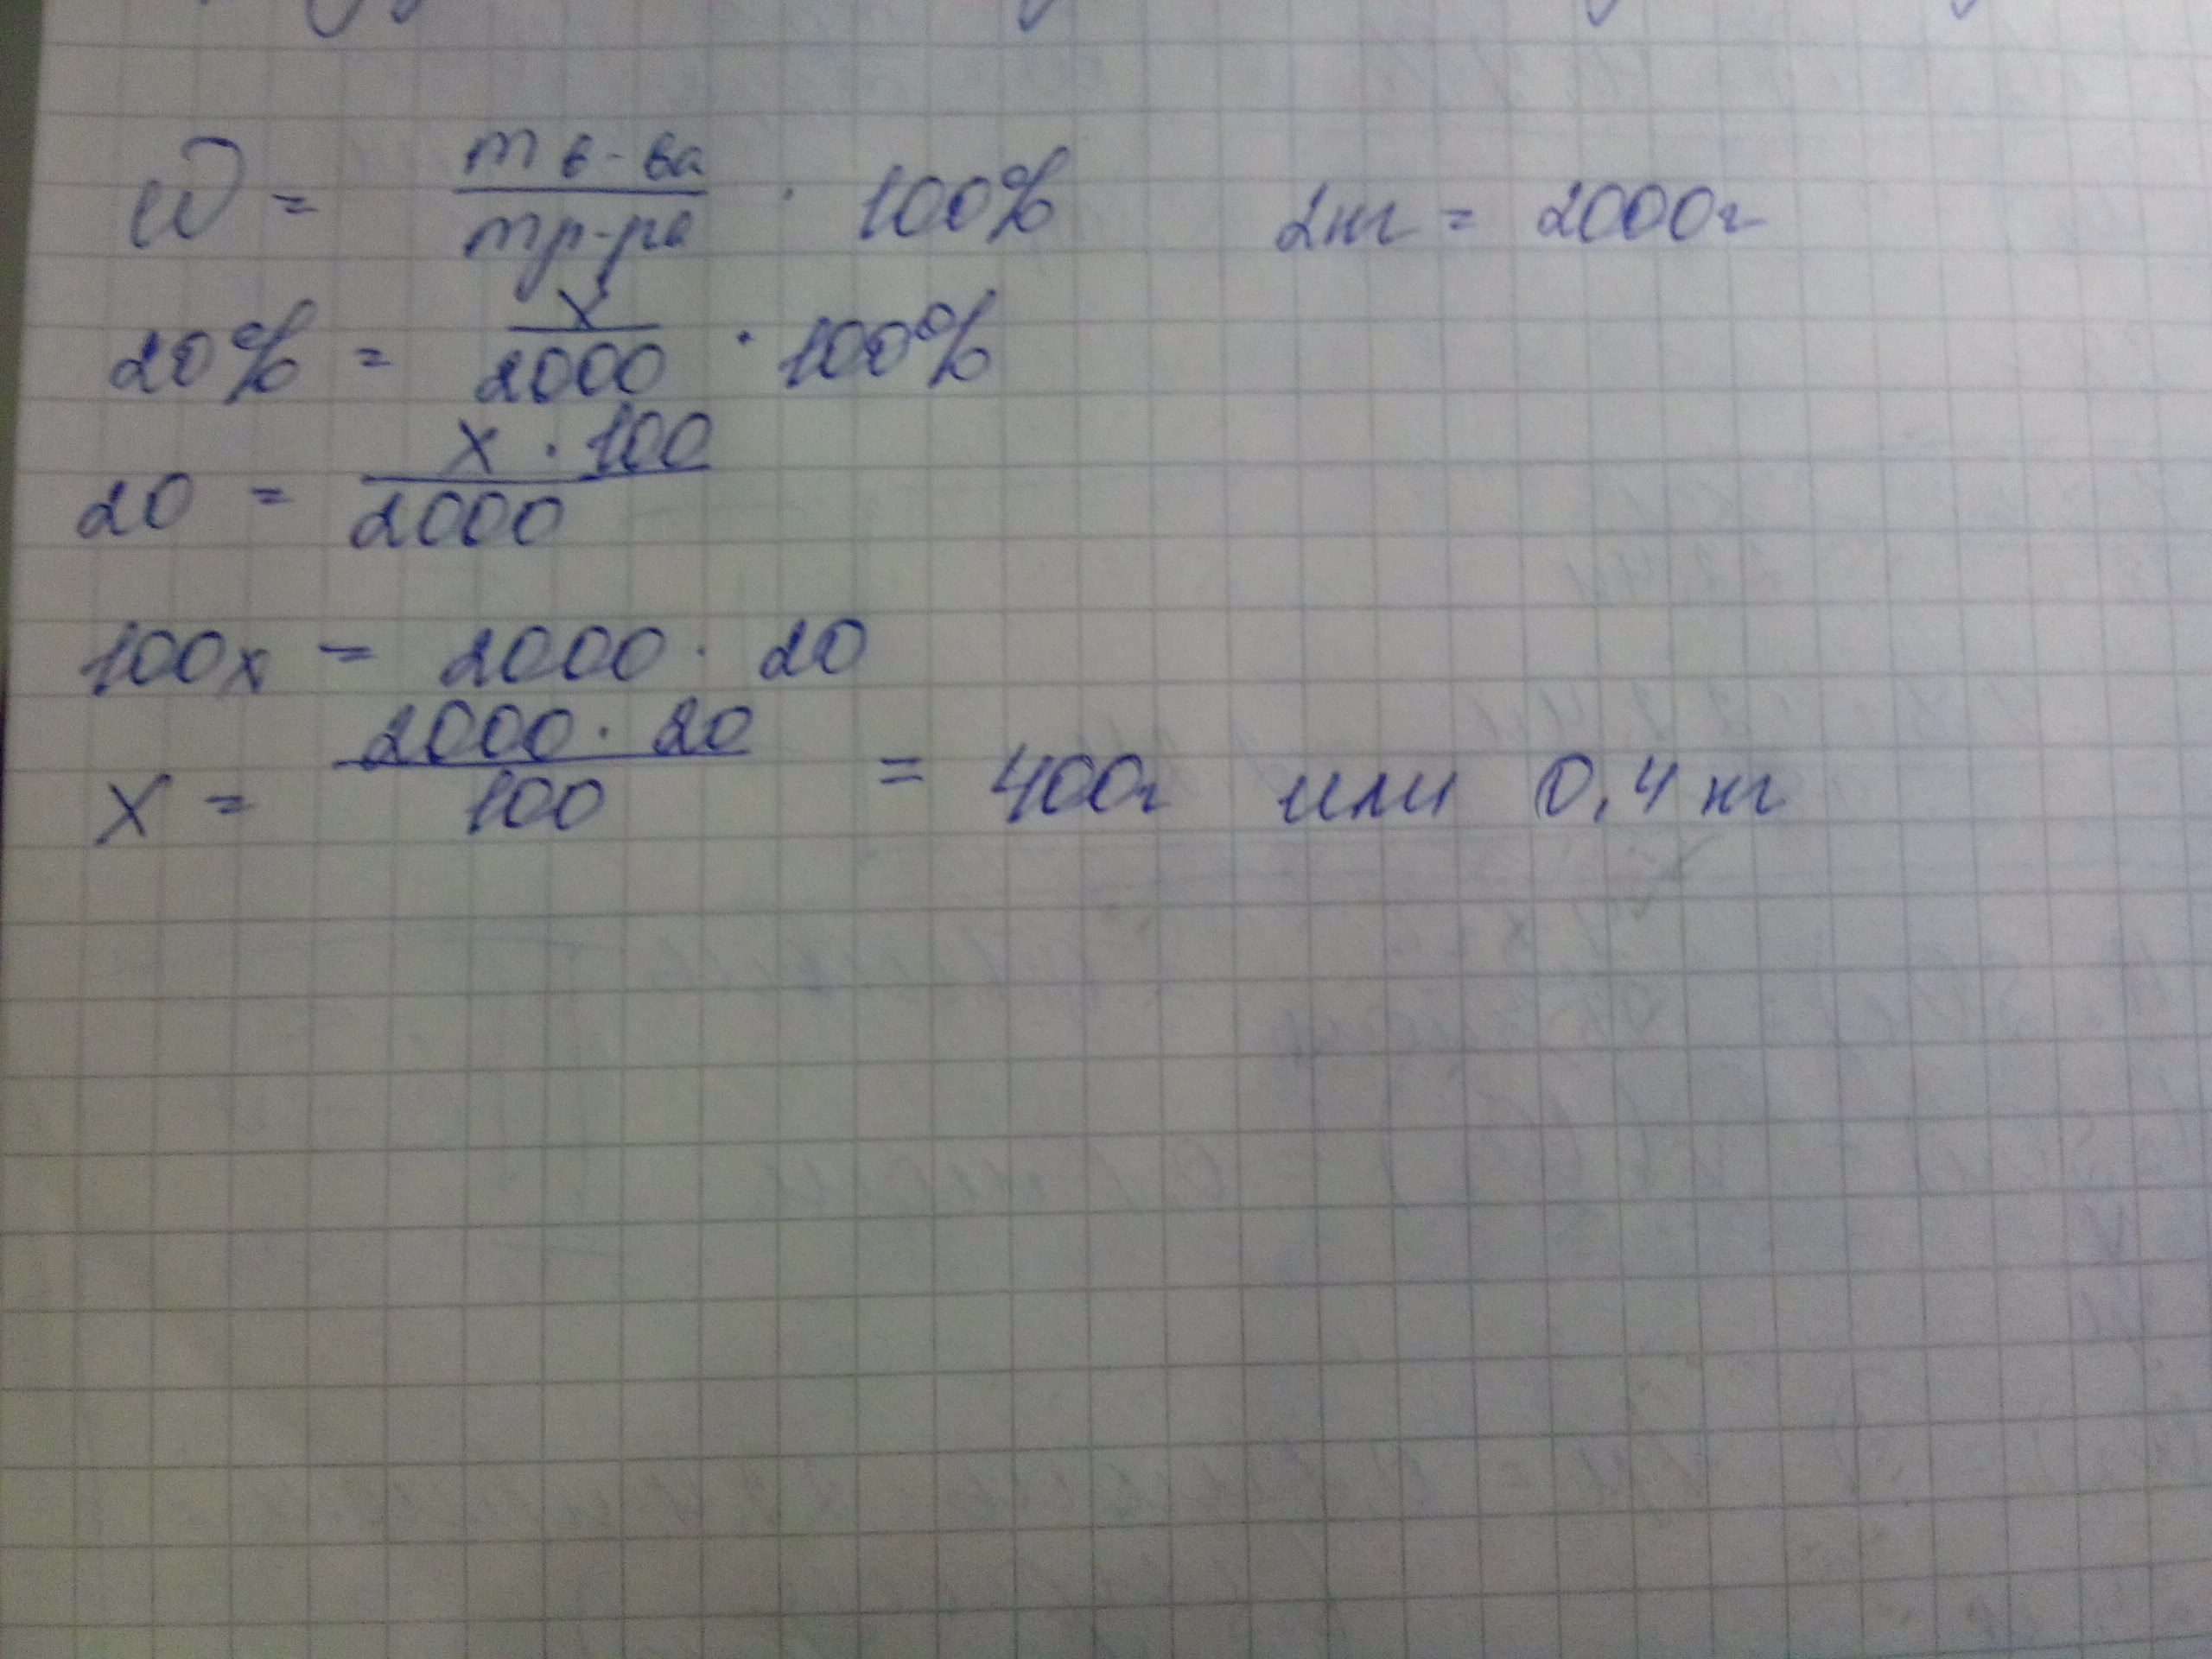 ω = m в-ва / m р-ра · 100% 2кг = 2000г
20% = x / 2000 · 100%
20 = x · 100 / 2000
100x = 2000 · 20
x = 2000 · 20 / 100 = 400г или 0,4 кг